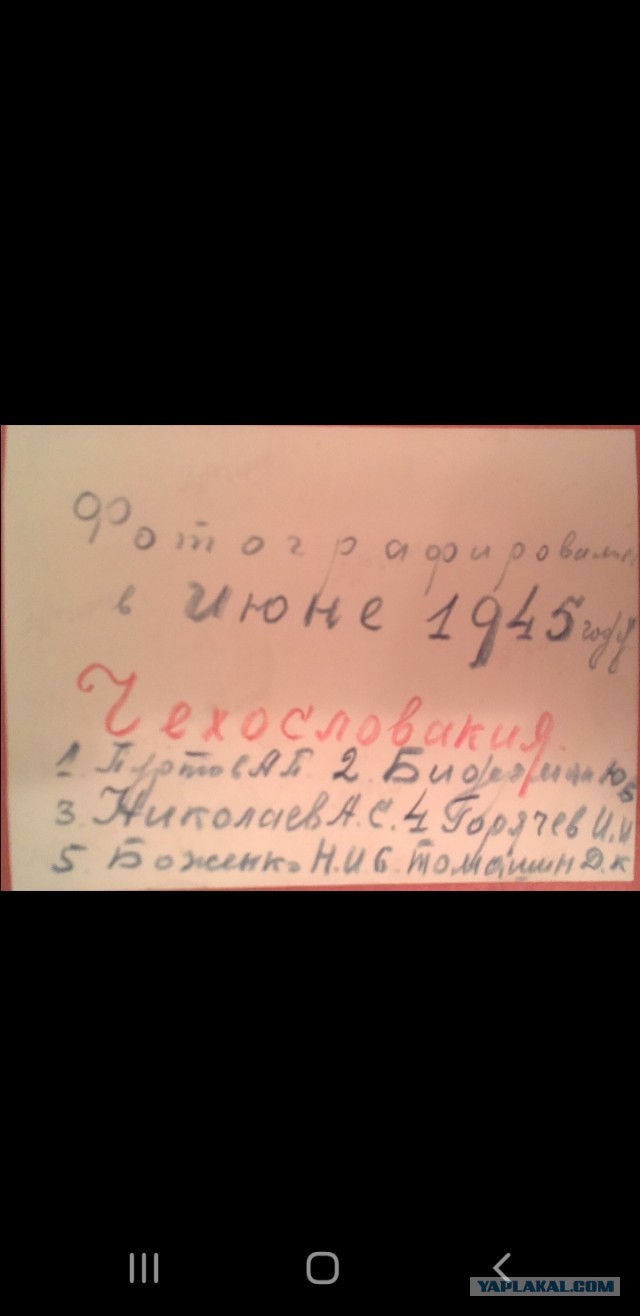 Фотографировались
в Июне 1945 году
Чехословакия.
1. Пуртов А П. 2. Бидерман Ю
3. Николаев А. С. 4 Горячев И. И
5 Боженко Н. И 6. Томашин Д. К
YAPLAKAL.COM